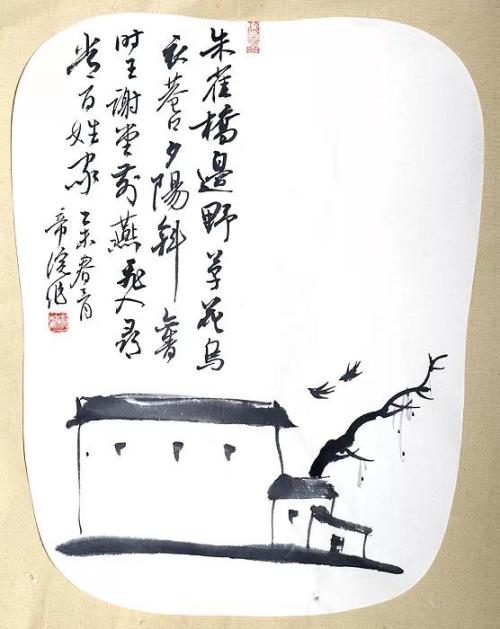 朱雀橋邊野草花烏
衣巷口夕陽斜舊
时王謝堂前燕飛入尋
常百姓家
乙未春月
作